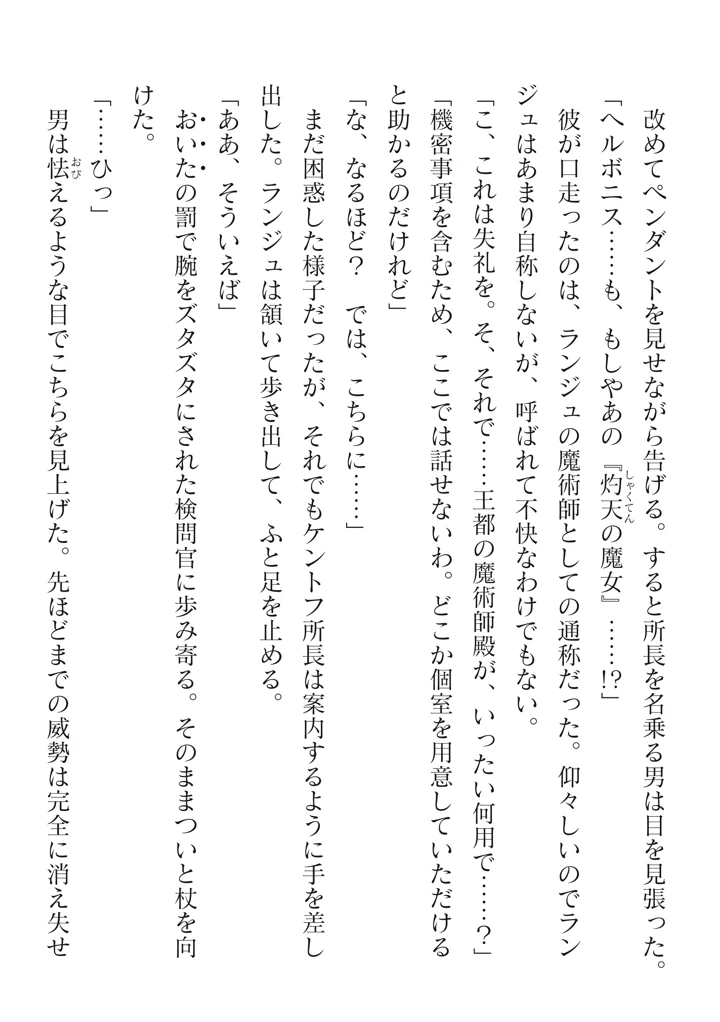 改めてペンダントを見せながら告げる。すると所長を名乗る男は目を見張った。
「ヘルボニス……も、もしやあの『灼天の魔女』……!?」
　彼が口走ったのは、ランジュの魔術師としての通称だった。仰々しいのでラン
ジュはあまり自称しないが、呼ばれて不快なわけでもない。
「こ、これは失礼を。そ、それで……王都の魔術師殿が、いったい何用で……？」
「機密事項を含むため、ここでは話せないわ。どこか個室を用意していただける
と助かるのだけれど」
「な、なるほど？　では、こちらに……」
　まだ困惑した様子だったが、それでもケントフ所長は案内するように手を差し
出した。ランジュは頷いて歩き出して、ふと足を止める。
「ああ、そういえば」
　おいたの罰で腕をズタズタにされた検問官に歩み寄る。そのままついと杖を向
けた。
「……ひっ」
　男は怯えるような目でこちらを見上げた。先ほどまでの威勢は完全に消え失せ